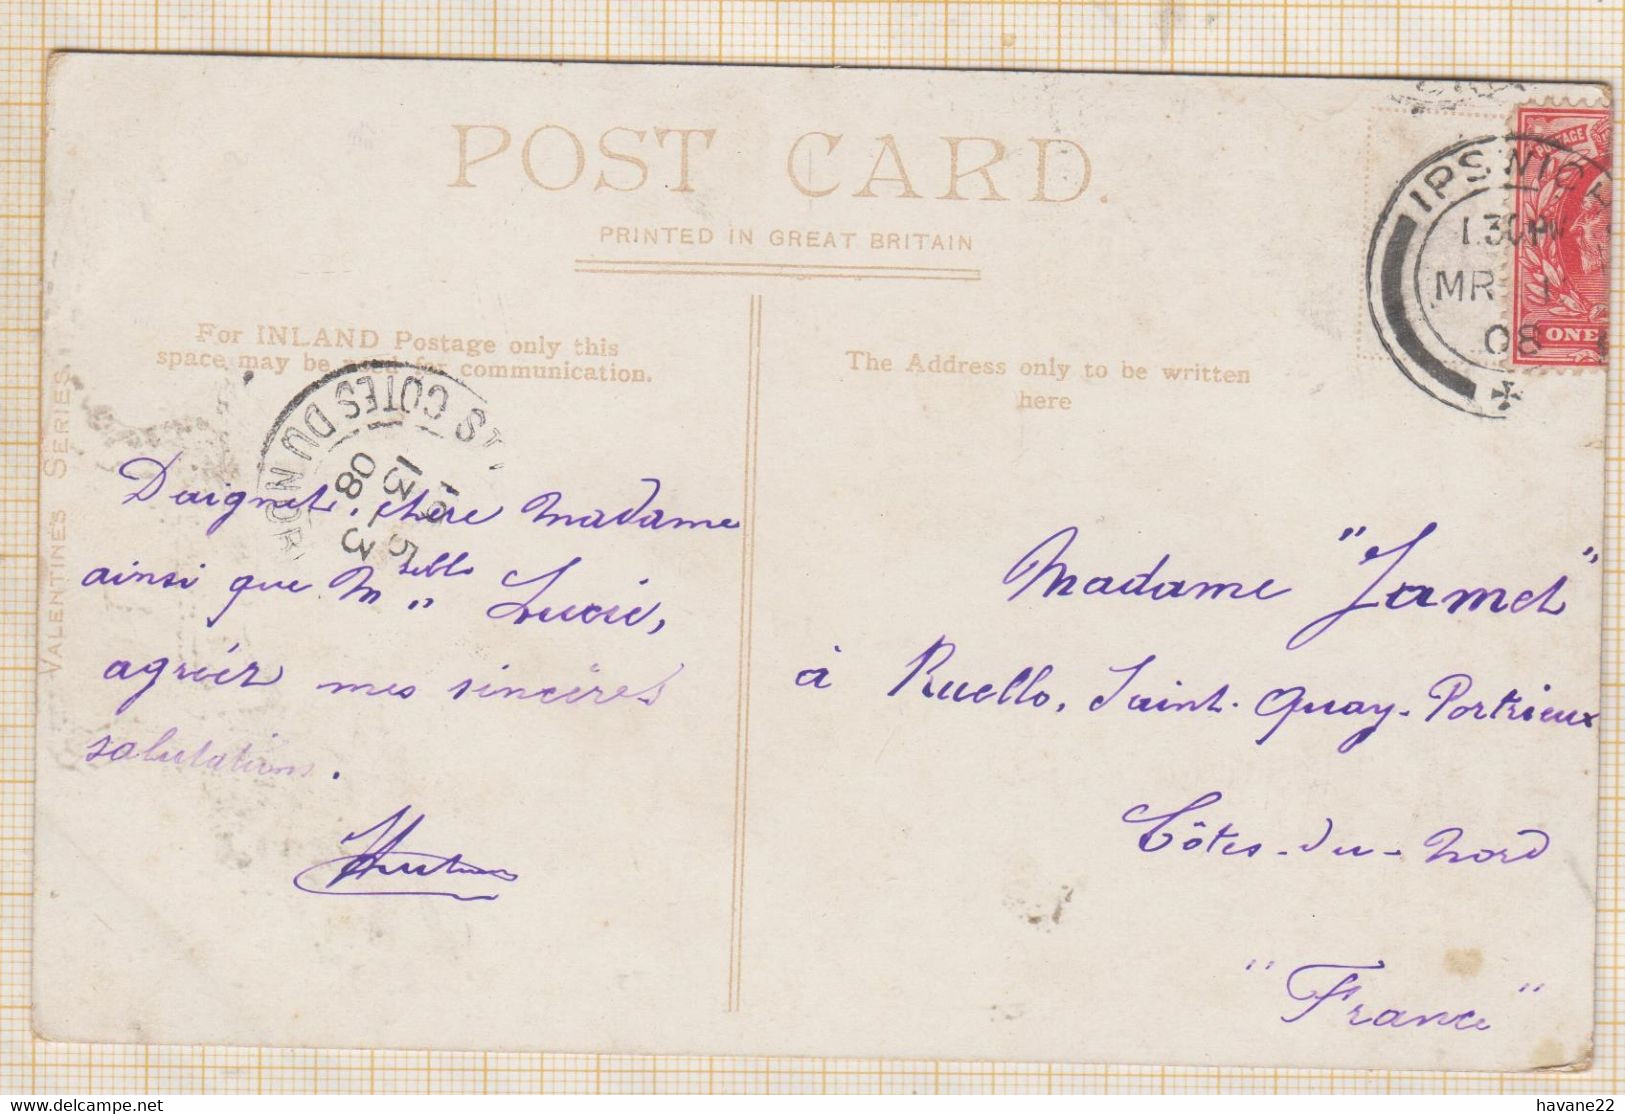 POST CARD.
PRINTED IN GREAT BRITAIN
For INLAND Postage only this
space may be used for communication.
The Address only to be written
here
VALENTINES SERIES
IPSWICH
1.30 PM
MR 1
08
ONE
POSTAGE
S COTES DU NOR
19 5
13 3
08
Daignez, chère Madame
ainsi que Melle Lucie,
agréer mes sincères
salutations.
Madame "Jamet"
à Ruello, Saint-Quay-Portrieux
Côtes-du-Nord
"France"
havane22